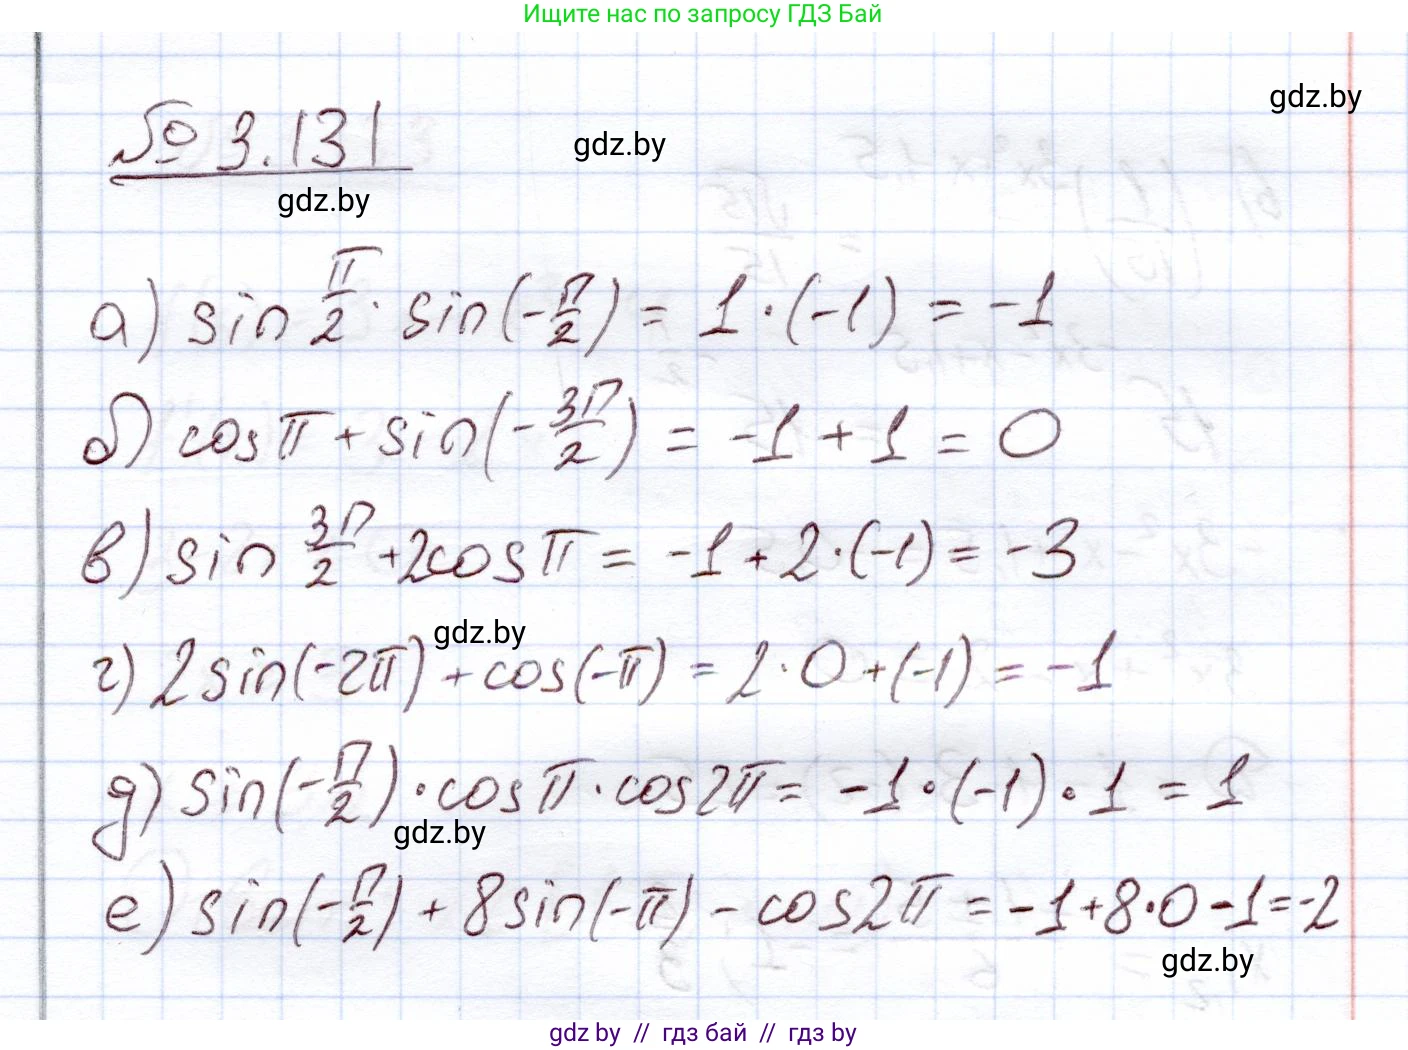 Ищите нас по запросу ГДЗ Бай
gdz.by
№ 3.131
gdz.by
gdz.by
а) sin π/2 · sin(-π/2) = 1 · (-1) = -1
б) cos π + sin(-3π/2) = -1 + 1 = 0
в) sin 3π/2 + 2cos π = -1 + 2 · (-1) = -3
gdz.by
г) 2sin(-2π) + cos(-π) = 2 · 0 + (-1) = -1
д) sin(-π/2) · cos π · cos 2π = -1 · (-1) · 1 = 1
gdz.by
е) sin(-π/2) + 8sin(-π) - cos 2π = -1 + 8 · 0 - 1 = -2
gdz.by
gdz by // гдз бай // гдз by